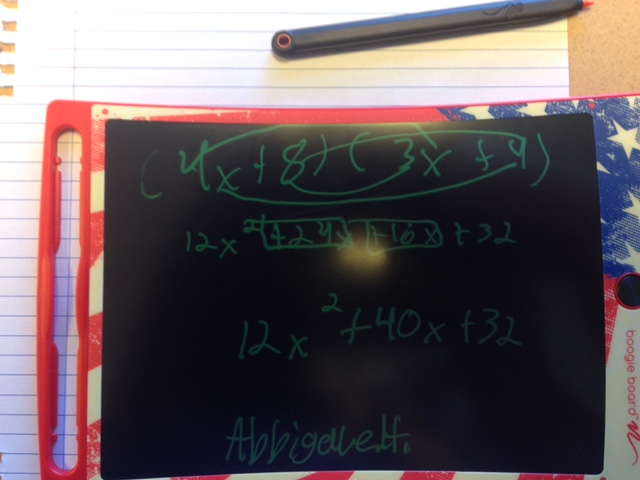 (4x+8)(3x+4)
12x²+24x+16x+32
12x²+40x+32
boogie board